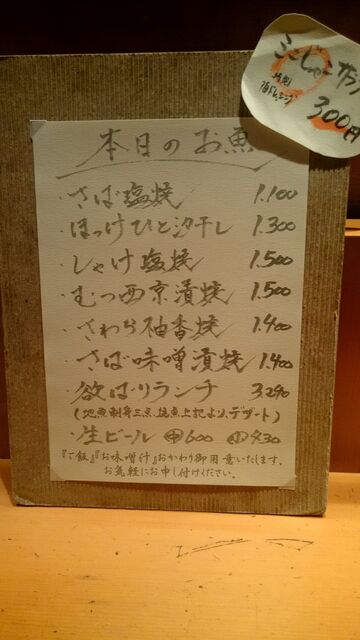 本日のお魚
・さば塩焼 1.100
ほっけひと汐干し 1.300
・しゃけ塩焼 1.500
・むつ西京漬焼 1.500
・さわら柚香焼 1.400
・さば味噌漬焼 1.400
・欲ばりランチ 3.290
(地魚刺身三点、焼魚上記より、デザート)
・生ビール ㊥600 ㊤430
『ご飯』『お味噌汁』おかわり御用意いたします。
お気軽にお申し付けください。
300円